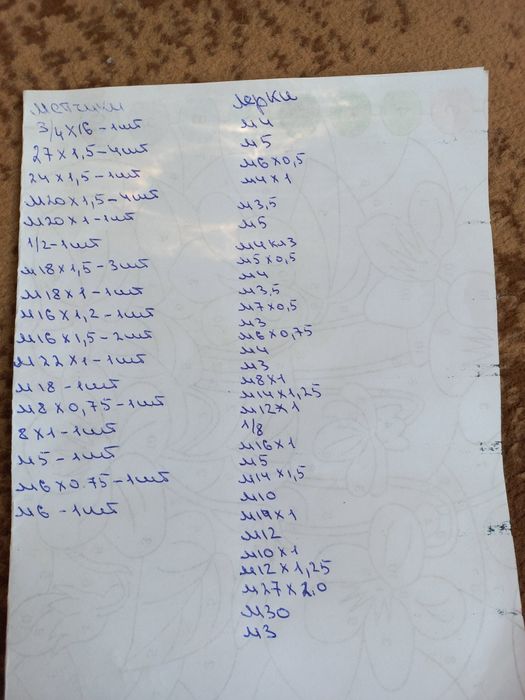 Метчики
3/4х16 – 1шт
27х1,5 – 4шт
24х1,5 – 1шт
м20х1,5 – 4шт
м20х1 – 1шт
1/2 – 1шт
м18х1,5 – 3шт
м18х1 – 1шт
м16х1,2 – 1шт
м16х1,5 – 2шт
м22х1 – 1шт
м18 – 1шт
м8х0,75 – 1шт
8х1 – 1шт
м5 – 1шт
м6х0.75 – 1шт
м6 – 1шт
Лерки
м4
м5
м6х0,5
м4х1
м3,5
м5
м4кл3
м5х0,5
м4
м3,5
м7х0,5
м3
м6х0,75
м4
м3
м8х1
м14х1,25
м12х1
1/8
м16х1
м5
м14х1,5
м10
м19х1
м12
м10х1
м12х1,25
м27х2,0
м30
м3